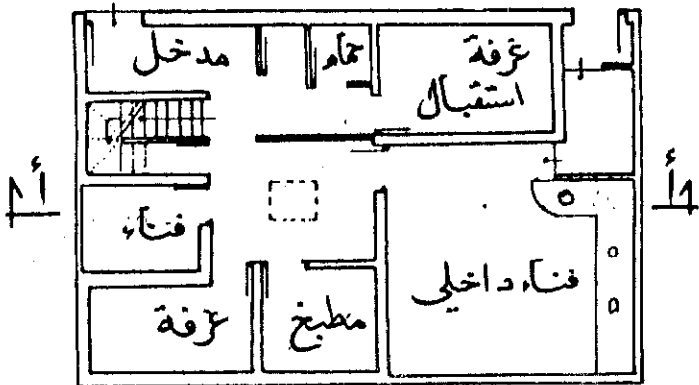 مدخل
حمام
غرفة
استقبال
أ
أ
فناء
فناء داخلي
غرفة
مطبخ